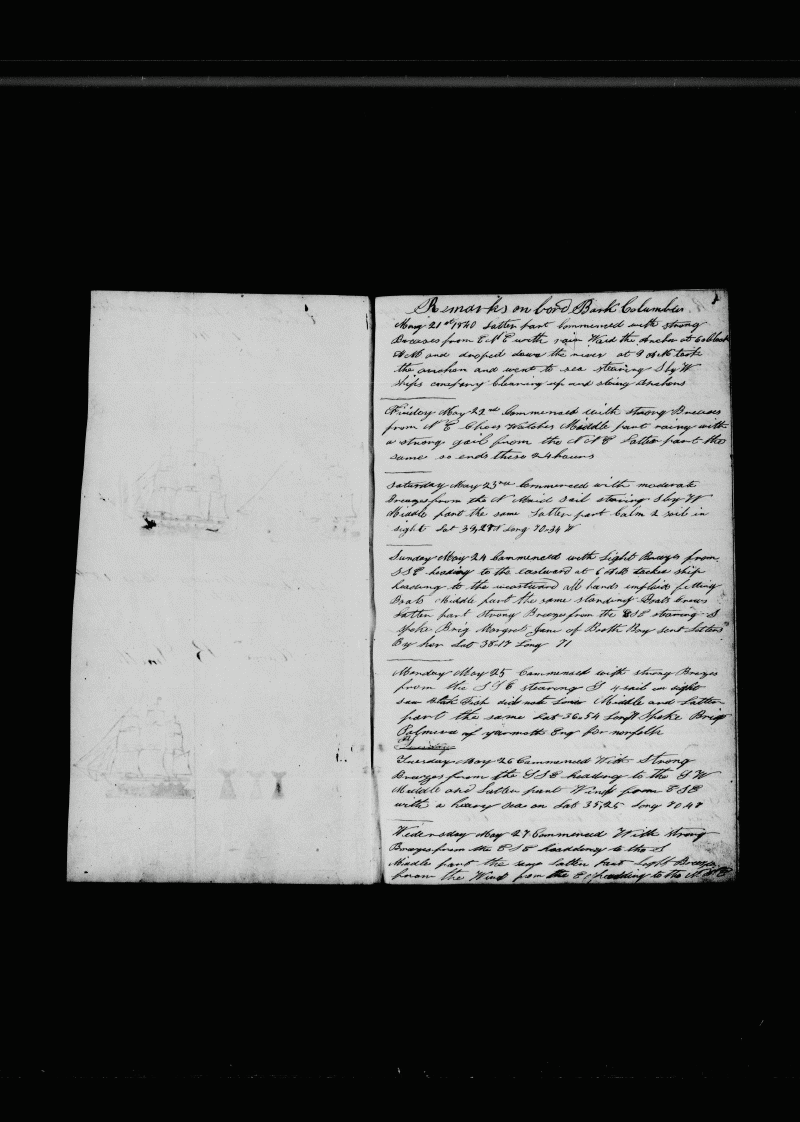 1
Remarks on bord Bark Columbus
May 21st 1840 Latter part Commenced with strong
Breeses from E N E with rain the Anchor at 6 oclock
A M and droped down the river at 9 A M took
the anchon and went to sea stearing S by W
ships company Cleaning up and stoing anchons
Friday May 22nd Commenced with strong Breeses
from N E Middle part rainy with
a strong gail from the N N E Latter part the
same so ends these 24 hours
Saturday May 23rd Commenced with moderate
Breezes from the N sail stearing S by W
Middle part the same Latter part Calm 2 sail in
sight Lat 39,28 Long 70.34 W
Sunday May 24 Commenced with Light Breezes from
S S E heading to the Eastward at 6 A M tacked ship
heading to the westward all hands fitting
Boats Middle part the same standing Boats crews
Latter part Strong Breezes from the ESE stearing S
Spoke Brig Margret Jane of Booth Bay sent Letters
By her Lat 38-17 Long 71
Monday May 25 Commenced with strong Brezes
from the S S E stearing S 4 sail in sight
saw Blak Fish did not Lower Middle and Latter
part the same Lat 36.54 Spoke Brig
of yarmoth Eng for norfolk
Tuesday May 26 Commenced With Strong
Breezes from the S S E headeng to the S W
Middle and Latter part Winds from E S E
with a heavy sea on Lat 35,25 Long 70.48
Wedensday May 27 Commenced With strong
Breezes from the E S E headdeng to the S
Middle part the same Latter Part Light Breezes
from the Wind from the E headdeng to the